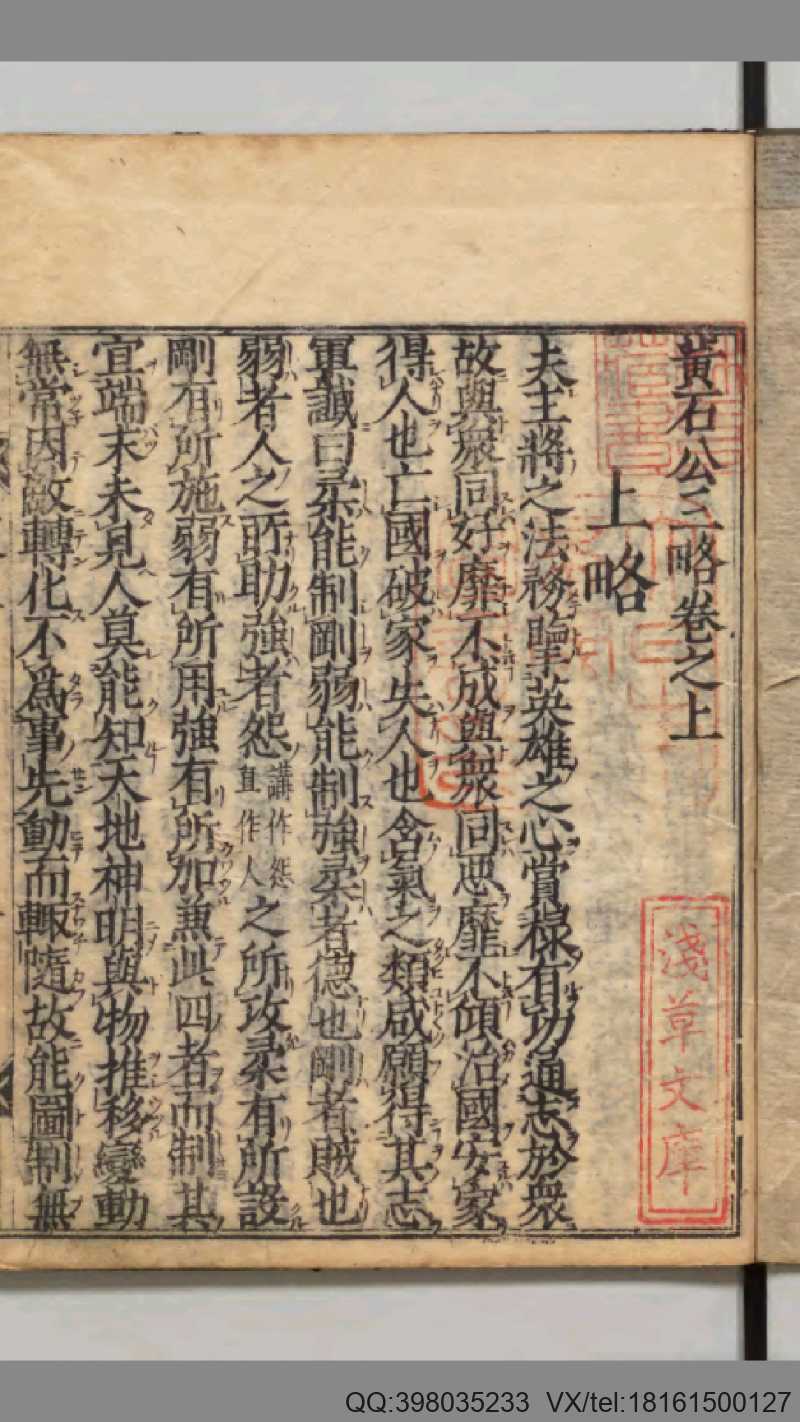 黄石公三略卷之上
上略
夫主將之法務擥英雄之心賞祿有功通志於衆
故與衆同好靡不成與衆同惡靡不傾治國安家
得人也亡國破家失人也含氣之類咸願得其志
軍諴曰柔能制剛弱能制強柔者德也剛者賊也
弱者人之所助強者怨講作怨直作人之所攻柔有所設
剛有所施弱有所用強有所加兼此四者而制其
宜端末未見人莫能知天地神明與物推移變動
無常因敵轉化不爲事先動而輙隨故能圖制無
淺草文庫
QQ:398035233 VX/tel:18161500127